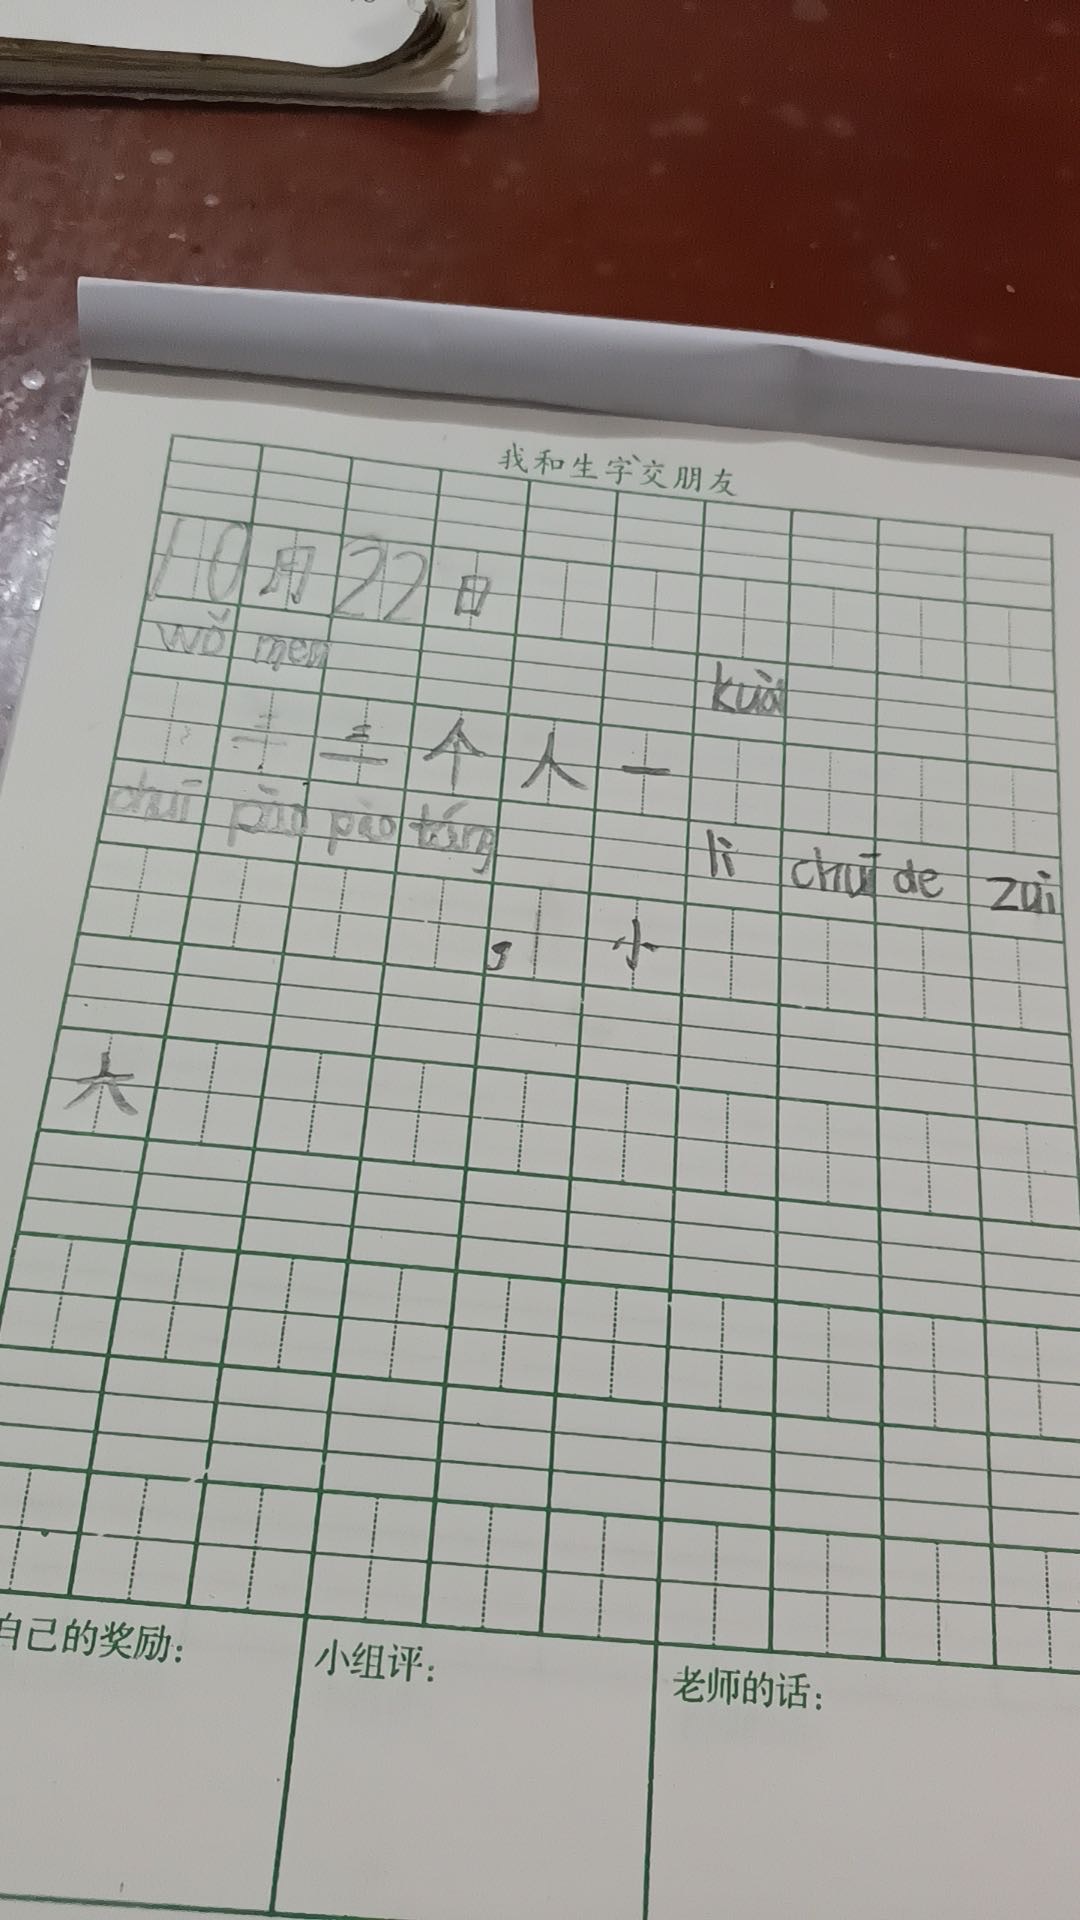 我和生字交朋友
10月22日
wǒ men kuài
三个人一
chuī pào pào táng lì chuī de zuì
，小
大
自己的奖励：
小组评：
老师的话：